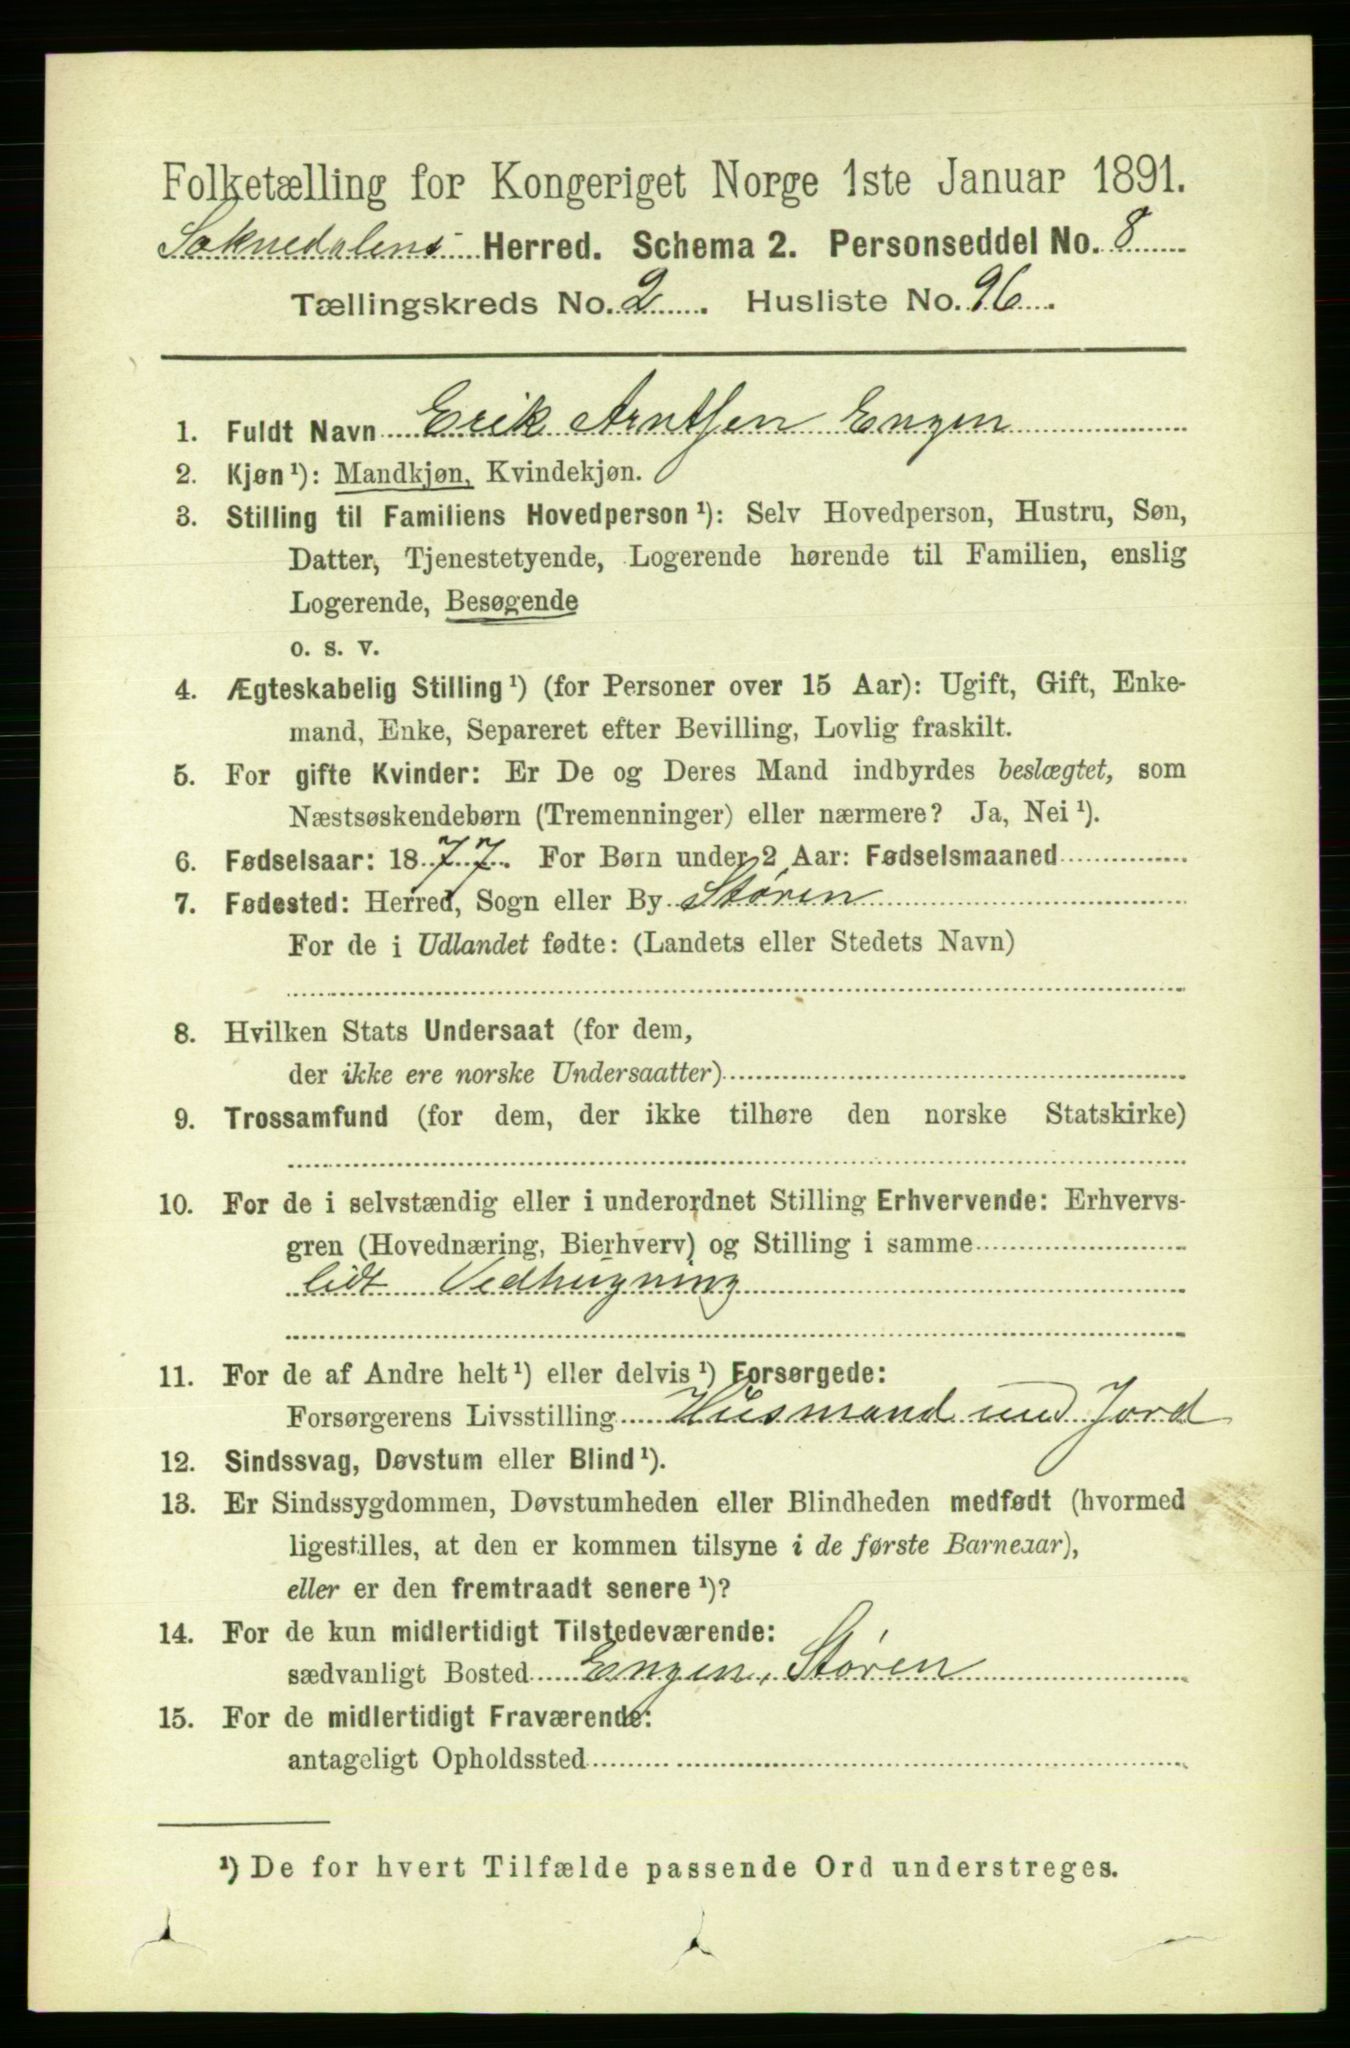 Folketælling for Kongeriget Norge 1ste Januar 1891.
Soknedalens Herred. Schema 2. Personseddel No. 8
Tællingskreds No. 2. Husliste No. 96.
1. Fuldt Navn Erik Arntsen Engen
2. Kjøn ¹): Mandkjøn, Kvindekjøn.
3. Stilling til Familiens Hovedperson ¹): Selv Hovedperson, Hustru, Søn,
Datter, Tjenestetyende, Logerende hørende til Familien, enslig
Logerende, Besøgende
o. s. v.
4. Ægteskabelig Stilling ¹) (for Personer over 15 Aar): Ugift, Gift, Enke-
mand, Enke, Separeret efter Bevilling, Lovlig fraskilt.
5. For gifte Kvinder: Er De og Deres Mand indbyrdes beslægtet, som
Næstsøskendebørn (Tremenninger) eller nærmere? Ja, Nei ¹).
6. Fødselsaar: 1877. For Børn under 2 Aar: Fødselsmaaned
7. Fødested: Herred, Sogn eller By Støren
For de i Udlandet fødte: (Landets eller Stedets Navn)
8. Hvilken Stats Undersaat (for dem,
der ikke ere norske Undersaatter)
9. Trossamfund (for dem, der ikke tilhøre den norske Statskirke)
10. For de i selvstændig eller i underordnet Stilling Erhvervende: Erhvervs-
gren (Hovednæring, Bierhverv) og Stilling i samme
lidt Vedhugning
11. For de af Andre helt ¹) eller delvis ¹) Forsørgede:
Forsørgerens Livsstilling Husmand med Jord
12. Sindssvag, Døvstum eller Blind ¹).
13. Er Sindssygdommen, Døvstumheden eller Blindheden medfødt (hvormed
ligestilles, at den er kommen tilsyne i de første Barneaar),
eller er den fremtraadt senere ¹)?
14. For de kun midlertidigt Tilstedeværende:
sædvanligt Bosted Engen, Støren
15. For de midlertidigt Fraværende:
antageligt Opholdssted
¹) De for hvert Tilfælde passende Ord understreges.